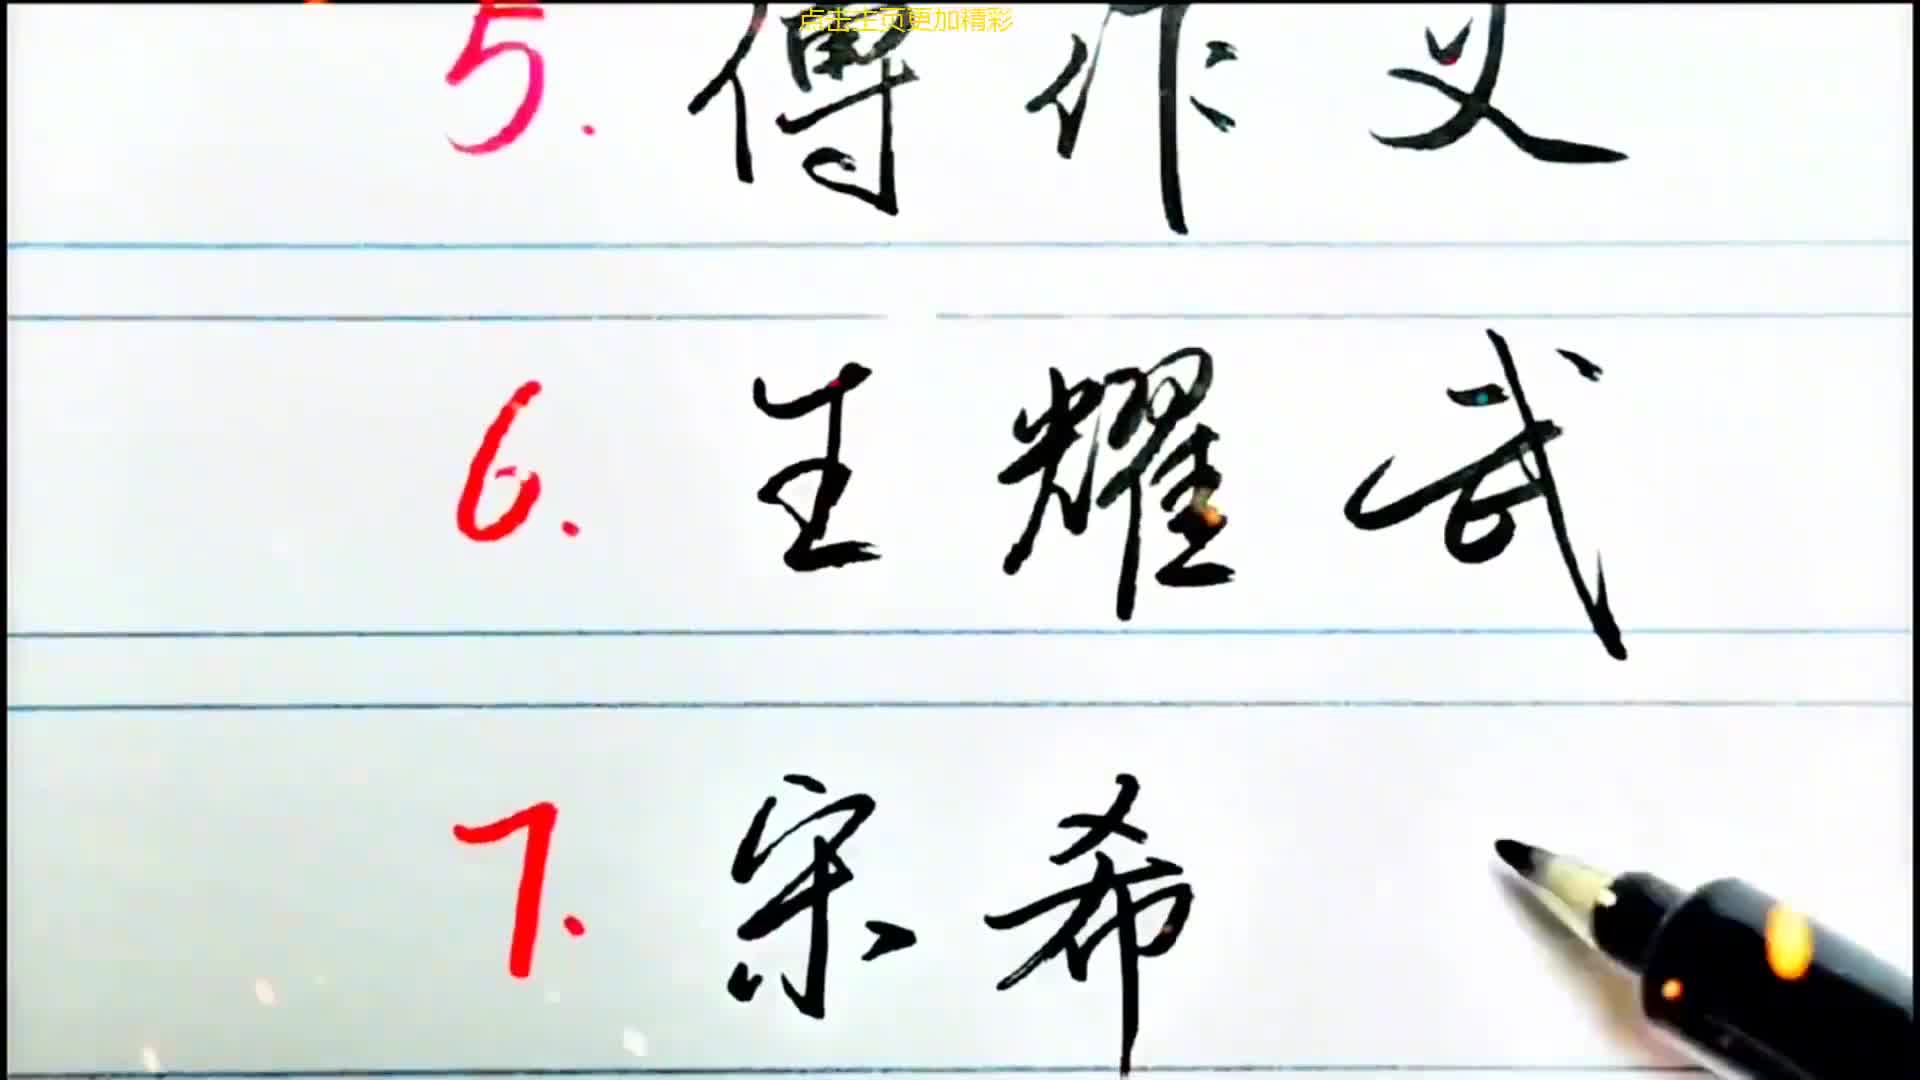 点击主页更加精彩
5. 傅作义
6. 王耀武
7. 宋希